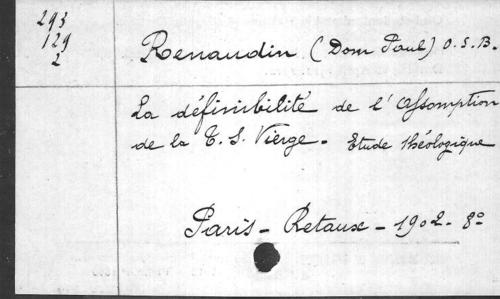 293
129
2
Renaudin (Dom Paul) O.S.B.
La définibilité de l'Assomption
de la T. S. Vierge. Etude théologique
Paris - Retaux - 1902 - 8º